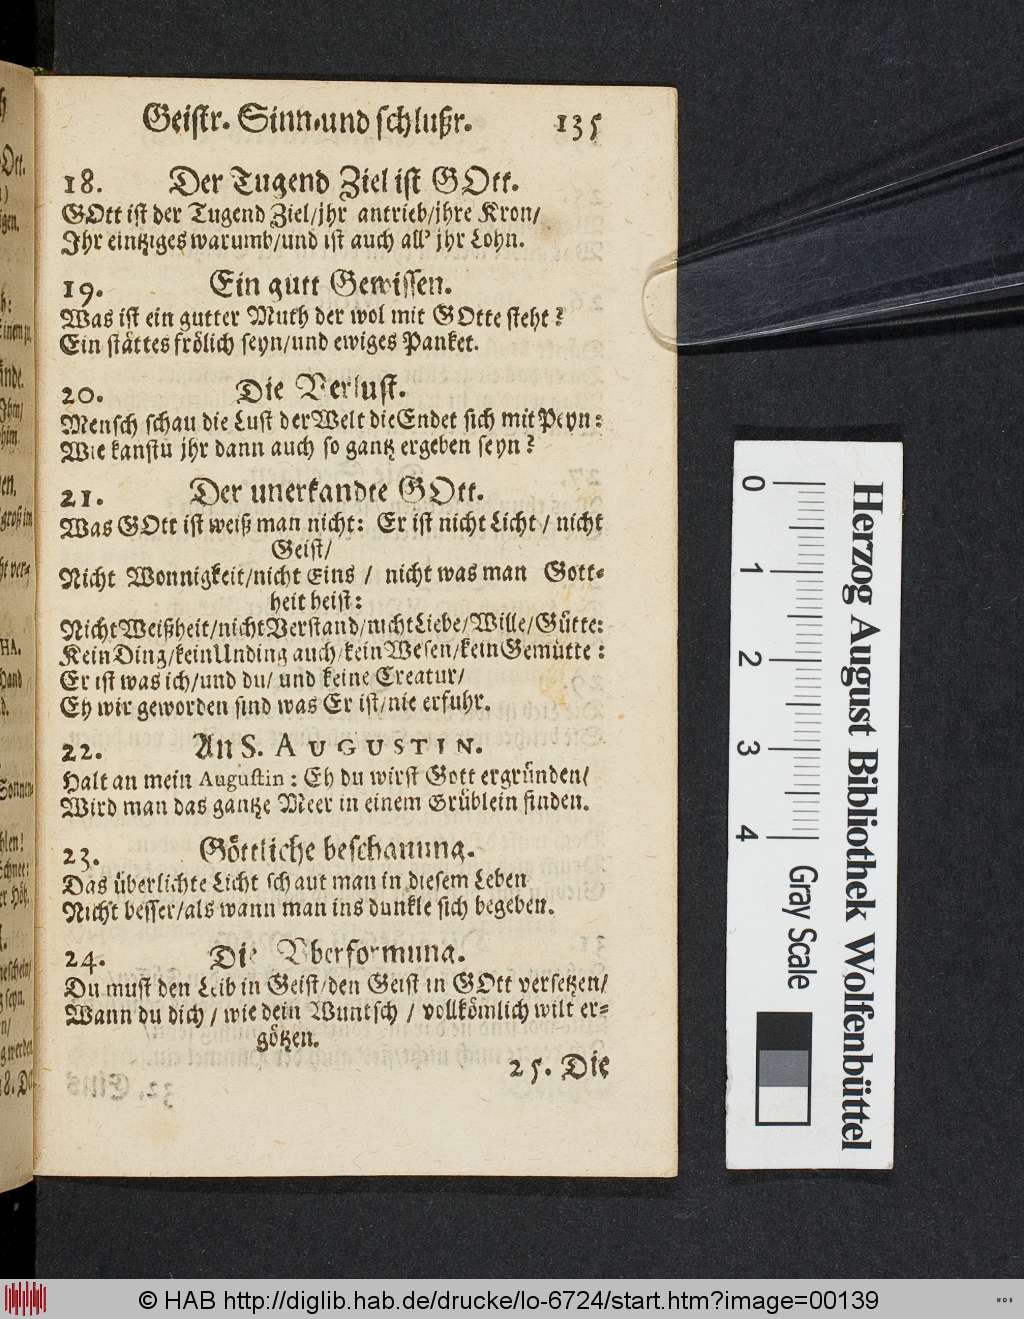 Geistr. Sinn- und schlußr. 135
18. Der Tugend Ziel ist GOtt.
GOtt ist der Tugend Ziel/jhr antrieb/jhre Kron/
Jhr eintziges warumb/und ist auch all' jhr Lohn.
19. Ein gutt Gewissen.
Was ist ein gutter Muth der wol mit GOtte steht?
Ein stättes frölich seyn/und ewiges Panket.
20. Die Verlust.
Mensch schau die Lust der Welt die Endet sich mit Peyn:
Wie kanstu jhr dann auch so gantz ergeben seyn?
21. Der unerkandte GOtt.
Was GOtt ist weiß man nicht: Er ist nicht Licht / nicht
Geist/
Nicht Wonnigkeit/nicht Eins / nicht was man Gott-
heit heist:
Nicht Weißheit/nicht Verstand/nicht Liebe/Wille/Gütte:
Kein Ding/kein Unding auch/kein Wesen/kein Gemütte:
Er ist was ich/und du/ und keine Creatur/
Eh wir geworden sind was Er ist/nie erfuhr.
22. An S. AUGUSTIN.
Halt an mein Augustin: Eh du wirst Gott ergründen/
Wird man das gantze Meer in einem Grüblein finden.
23. Göttliche beschauung.
Das überlichte Licht schaut man in diesem Leben
Nicht besser/als wann man ins dunkle sich begeben.
24. Die Vberformung.
Du must den Leib in Geist/den Geist in GOtt versetzen/
Wann du dich / wie dein Wuntsch / vollkömlich wilt er-
götzen.
25. Die
Herzog August Bibliothek Wolfenbüttel
0 1 2 3 4
Gray Scale
© HAB http://diglib.hab.de/drucke/lo-6724/start.htm?image=00139